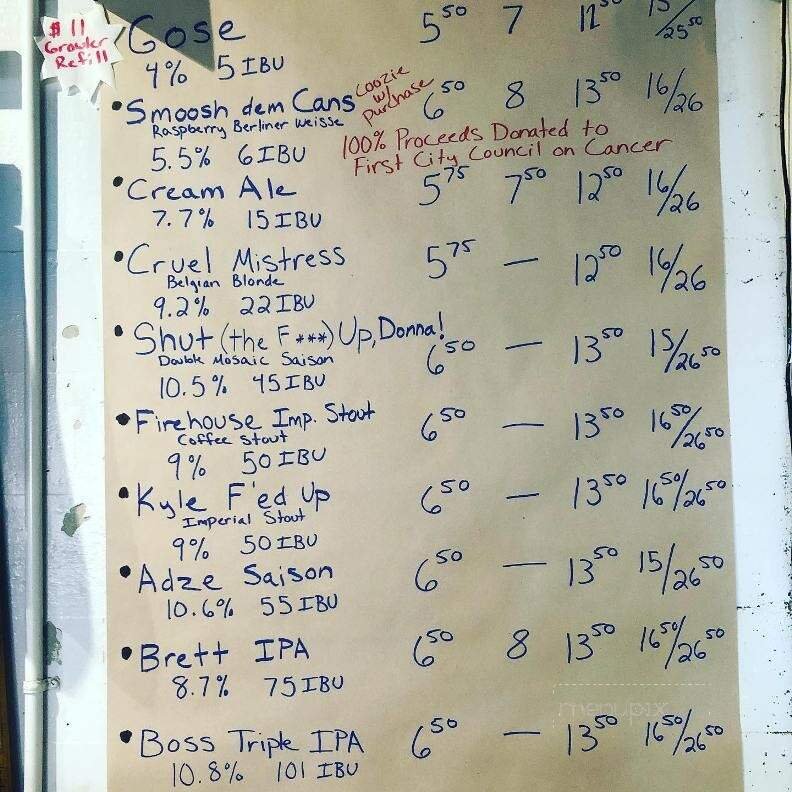 $11
Growler
Refill
Gose 5 50 7 12 50 15/25 50
4% 5 IBU
• Smoosh dem Cans 6 50 8 13 50 16/26
coozie
w/
purchase
Raspberry Berliner Weisse
5.5% 6 IBU
100% Proceeds Donated to
First City Council on Cancer
• Cream Ale 5 75 7 50 12 50 16/26
7.7% 15 IBU
• Cruel Mistress 5 75 — 12 50 16/26
Belgian Blonde
9.2% 22 IBU
• Shut (the F***) Up, Donna! 6 50 — 13 50 15/26 50
Double Mosaic Saison
10.5% 45 IBU
• Firehouse Imp. Stout 6 50 — 13 50 16 50/26 50
Coffee Stout
9% 50 IBU
• Kyle F'ed Up 6 50 — 13 50 16 50/26 50
Imperial Stout
9% 50 IBU
• Adze Saison 6 50 — 13 50 15/26 50
10.6% 55 IBU
• Brett IPA 6 50 8 13 50 16 50/26 50
8.7% 75 IBU
menupix
• Boss Triple IPA 6 50 — 13 50 16 50/26 50
10.8% 101 IBU